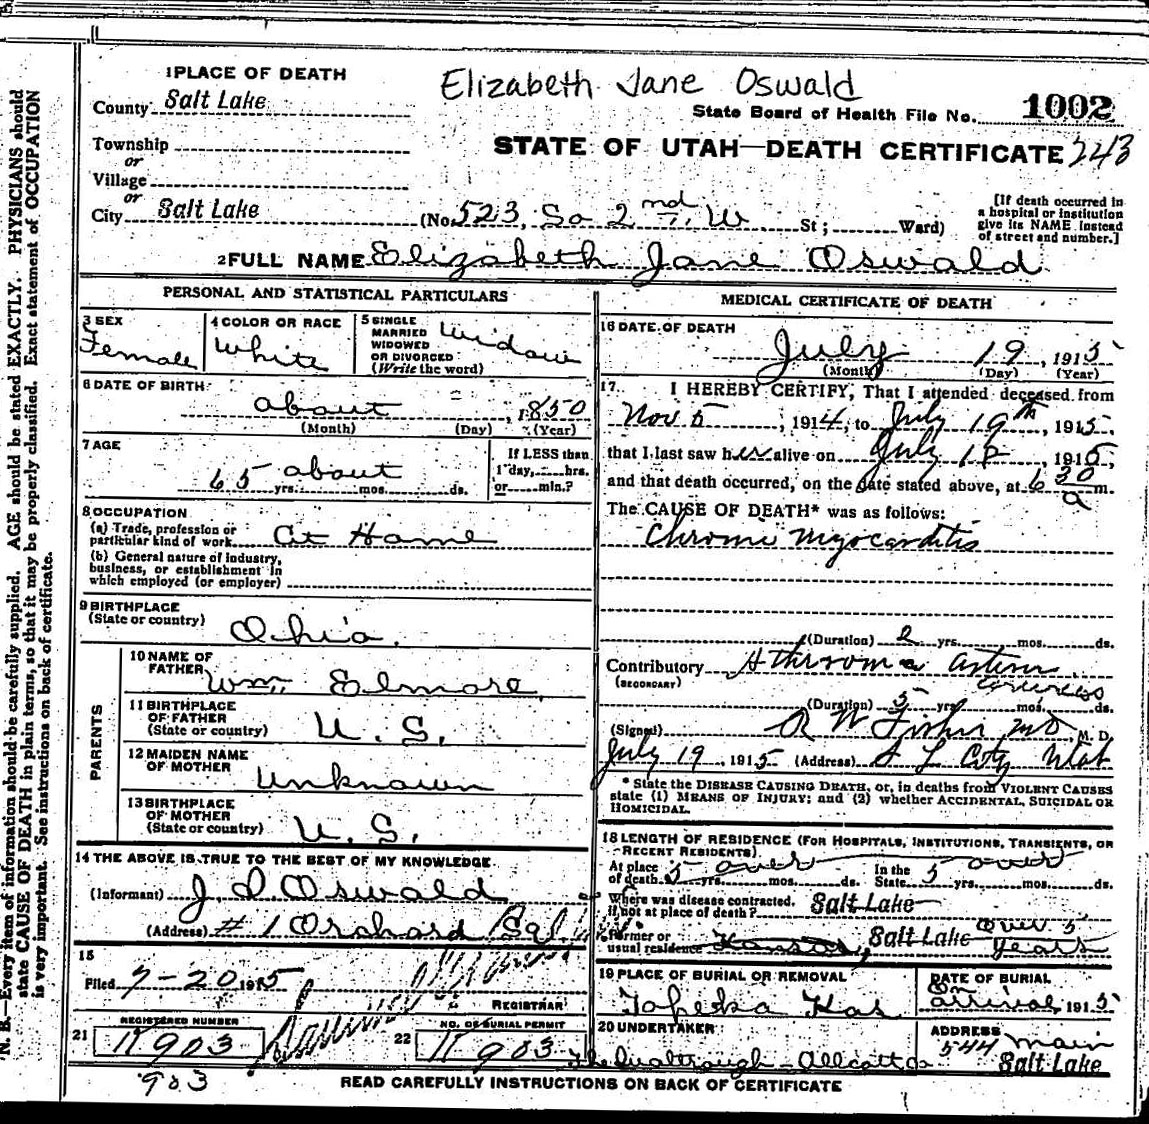 Elizabeth Jane Oswald
1 PLACE OF DEATH
County Salt Lake
State Board of Health File No. 1002
Township
or
Village
or
City Salt Lake
STATE OF UTAH—DEATH CERTIFICATE 243
(No. 523 So 2nd W St; Ward)
[If death occurred in
a hospital or institution
give its NAME instead
of street and number.]
2 FULL NAME Elizabeth Jane Oswald
PERSONAL AND STATISTICAL PARTICULARS
3 SEX
Female
4 COLOR OR RACE
White
5 SINGLE
MARRIED
WIDOWED
OR DIVORCED
(Write the word)
Widow
6 DATE OF BIRTH
about , 1850
(Month) (Day) (Year)
7 AGE
65 about
yrs. mos. ds.
If LESS than
1 day, hrs.
or min.?
8 OCCUPATION
(a) Trade, profession or
particular kind of work At Home
(b) General nature of industry,
business, or establishment in
which employed (or employer)
9 BIRTHPLACE
(State or country)
Ohio.
PARENTS
10 NAME OF
FATHER
Wm. Elmore
11 BIRTHPLACE
OF FATHER
(State or country)
U. S.
12 MAIDEN NAME
OF MOTHER
Unknown
13 BIRTHPLACE
OF MOTHER
(State or country)
U. S.
14 THE ABOVE IS TRUE TO THE BEST OF MY KNOWLEDGE
(Informant) J. D. Oswald
(Address) # 1 Orchard
15
Filed 7-20 1915
REGISTRAR
21 REGISTERED NUMBER
K 903
22 NO. OF BURIAL PERMIT
K 903
903
MEDICAL CERTIFICATE OF DEATH
16 DATE OF DEATH
July 19, 1915
(Month) (Day) (Year)
17. I HEREBY CERTIFY, That I attended deceased from
Nov 5, 1914, to July 19th, 1915,
that I last saw her alive on July 18, 1915,
and that death occurred, on the date stated above, at 6 30 a m.
The CAUSE OF DEATH* was as follows:
Chronic Myocarditis
(Duration) 2 yrs. mos. ds.
Contributory
(SECONDARY)
(Duration) 5 yrs. mos. ds.
(Signed) M. D.
July 19, 1915 (Address) S L City Utah
* State the DISEASE CAUSING DEATH, or, in deaths from VIOLENT CAUSES
state (1) MEANS OF INJURY; and (2) whether ACCIDENTAL, SUICIDAL OR
HOMICIDAL.
18 LENGTH OF RESIDENCE (FOR HOSPITALS, INSTITUTIONS, TRANSIENTS, OR
RECENT RESIDENTS).
At place
of death 5 yrs. over mos. ds.
In the
State 5 yrs. over mos. ds.
Where was disease contracted.
if not at place of death? Salt Lake
Former or
usual residence Kansas, Salt Lake over 5
years
19 PLACE OF BURIAL OR REMOVAL
Topeka Kas
DATE OF BURIAL
on
arrival, 1915
20 UNDERTAKER
ADDRESS
544 Main
Salt Lake
READ CAREFULLY INSTRUCTIONS ON BACK OF CERTIFICATE
N. B.—Every item of information should be carefully supplied. AGE should be stated EXACTLY. PHYSICIANS should
state CAUSE OF DEATH in plain terms, so that it may be properly classified. Exact statement of OCCUPATION
is very important. See instructions on back of certificate.